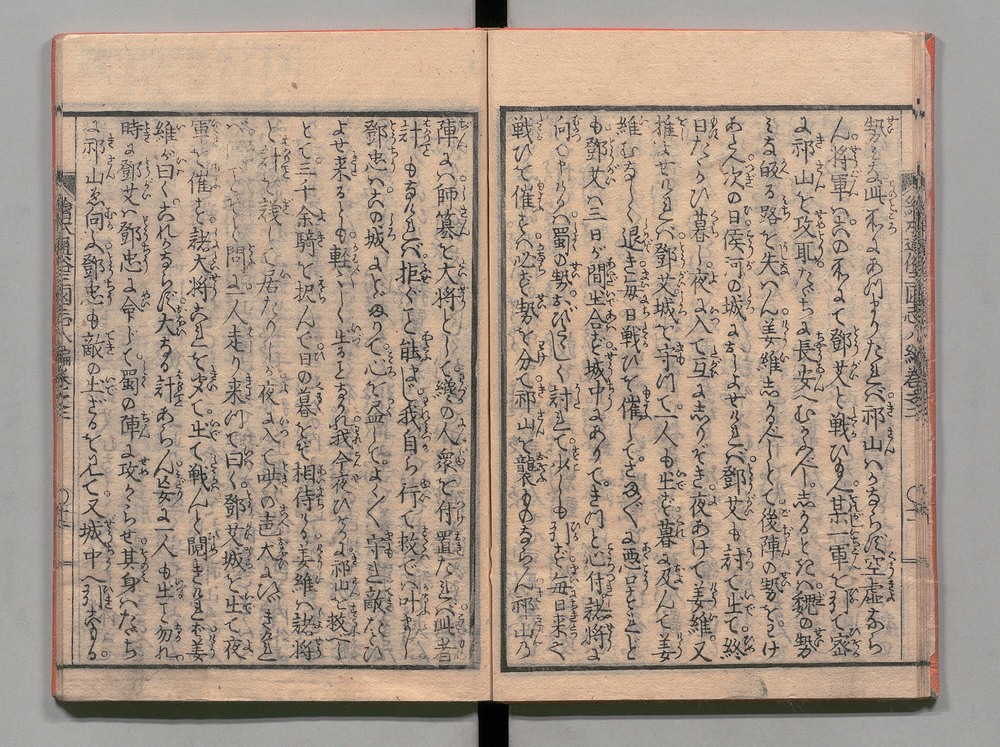 勢を此ホにあつまりたれバ祁山ハかならず空虚ならん
ん将軍ハ此ホにて鄧艾と戦ひ玉へ某一軍を引て密
に祁山を攻取たゞちに長安へむかへん志かるときハ魏の勢
ミな皈る路を失ハん姜維志かるべしとて後陣の勢をさけ
あたへ次の日侯河の城におしよせけれバ鄧艾も討て出て終
日たゝかひ暮し夜に入て互に志りぞき夜あけて姜維又
推よせけれバ鄧艾城を守つて一人も出ず暮に及んで姜
維むなしく退き毎日戦ひを催してさまざまに悪口すれども
も鄧艾ハ三日が間出合ず城中にありてきつと心付諸将に
向て申けるハ蜀の勢おびたゞしく討れて少しも引ず毎日来て
戦ひを催すハ必ず勢を分て祁山を襲ものならん祁山の
陣にハ師纂を大将として纔の人衆を付置たれバ此者
計もなけれバ拒ぐこと能まじ我自ら行て救でハ叶まじ
鄧忠ハ此の城にとゞまりて心を盡してよくよく守れ敵たとひ
よせ来るとも軽々しく出ることなかれ我今夜ひそかに祁山を救べし
とて三千余騎を択んで日の暮るを相待ける姜維ハ諸将
と計を議して居たりしが夜に入て吶の声大にひゞきけれ
問に一人走り来つて曰く鄧艾城を出て夜
軍を催すと諸大将これを聞て出て戦んと閙きけれバ姜
維が曰くこれかならず大なる計あらん妄に一人も出ること勿れ
時に鄧艾ハ鄧忠に命じて蜀の陣に攻かゝらせ其身ハたゞち
に祁山え向ふ鄧忠も敵の出ざるを見て又城中へ引入ける